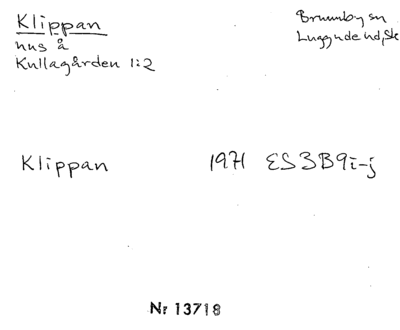 Klippan
hus å
Kullagården 1:2
Brunnby sn
Luggude hd, Sk
Klippan 1971 ES3B9i-j
Nr 13718